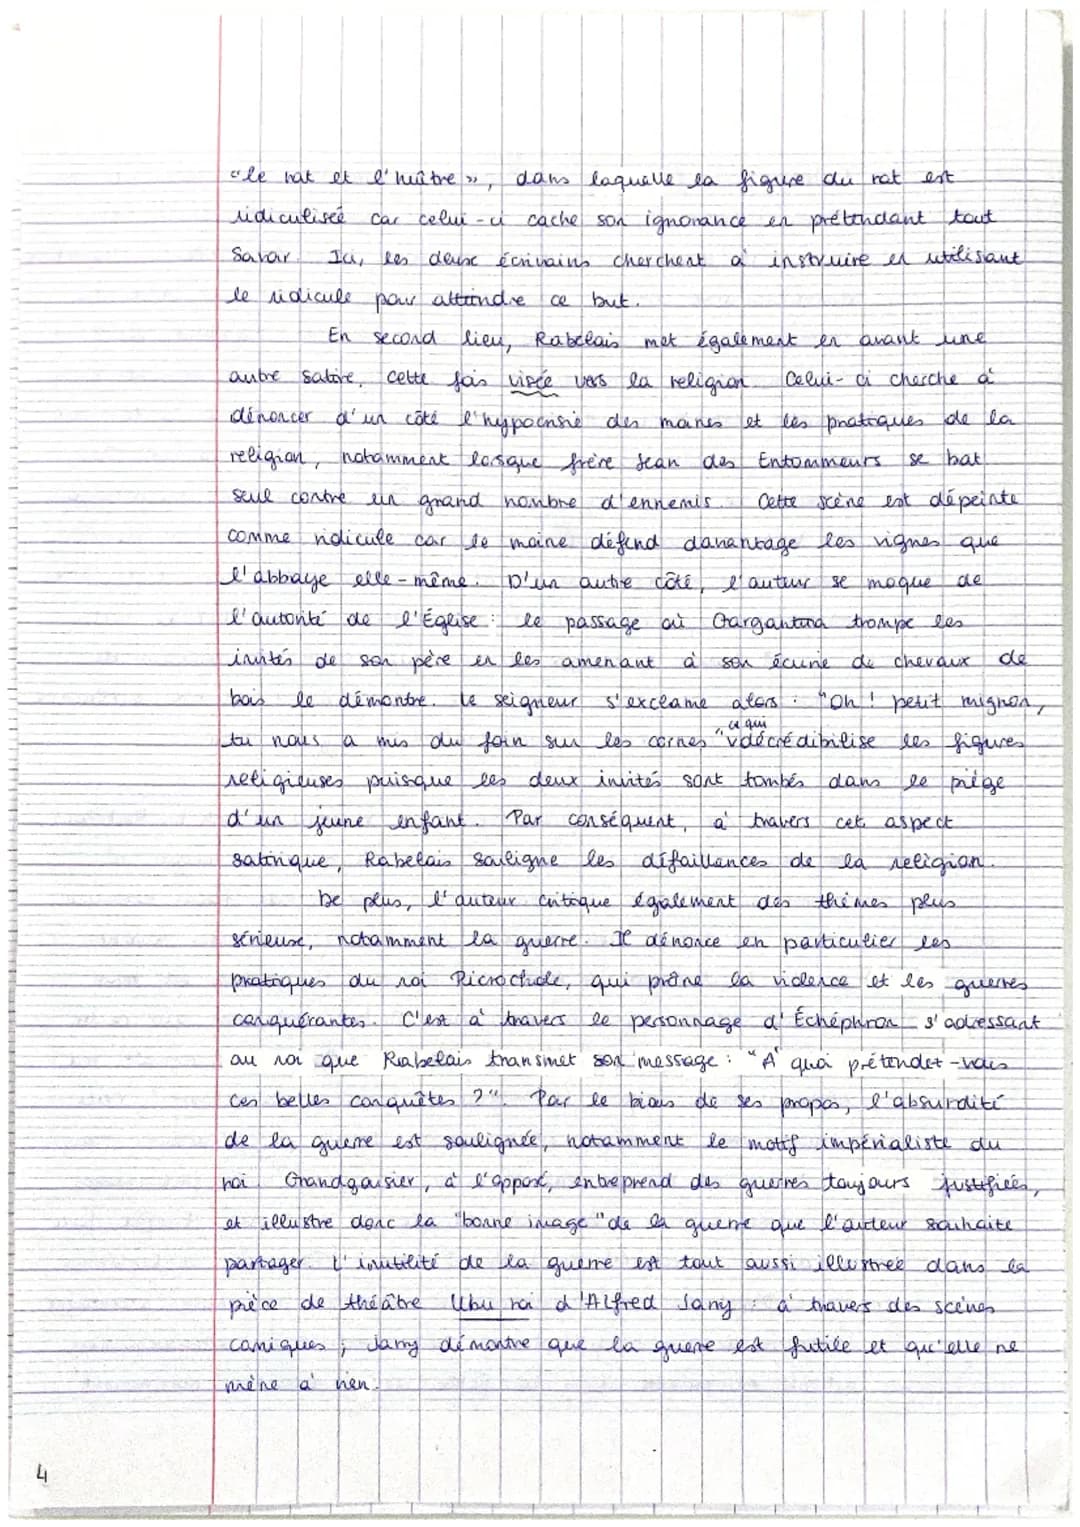 "le rat et l'huître », dans laquelle la figure du rat est
ridiculisée car celui-ci cache son ignorance en prétendant tout
savoir. Ici, les deux écrivains cherchent à instruire en utilisant
le ridicule pour atteindre ce but.
En second lieu, Rabelais met également en avant une
autre satire, cette fois visée vers la religion. Celui-ci cherche à
dénoncer d'un côté l'hypocrisie des moines et les pratiques de la
religion, notamment lorsque frère Jean des Entommeurs se bat
seul contre un grand nombre d'ennemis. Cette scène est dépeinte
comme ridicule car le moine défend davantage les vignes que
l'abbaye elle-même. D'un autre côté, l'auteur se moque de
l'autorité de l'Église : le passage où Gargantua trompe les
invités de son père en les amenant à son écurie de chevaux de
bois le démontre. Le seigneur s'exclame alors : "Oh ! petit mignon,
tu nous a mis du foin sur les cornes" ce qui décrédibilise les figures
religieuses puisque les deux invités sont tombés dans le piège
d'un jeune enfant. Par conséquent, à travers cet aspect
satirique, Rabelais souligne les défaillances de la religion.
De plus, l'auteur critique également des thèmes plus
sérieuse, notamment la guerre. Il dénonce en particulier les
pratiques du roi Picrochole, qui prône la violence et les guerres
conquérantes. C'est à travers le personnage d'Échéphron s'adressant
au roi que Rabelais transmet son message : "À quoi prétendet-vous
ces belles conquêtes ?". Par le biais de ses propos, l'absurdité
de la guerre est soulignée, notamment le motif impérialiste du
roi. Grandgousier, à l'opposé, entreprend des guerres toujours justifiées,
et illustre donc la "bonne image" de la guerre que l'auteur souhaite
partager. L'inutilité de la guerre est tout aussi illustrée dans la
pièce de théâtre Ubu roi d'Alfred Jarry : à travers des scènes
comiques ; Jarry démontre que la guerre est futile et qu'elle ne
mène à rien.
4